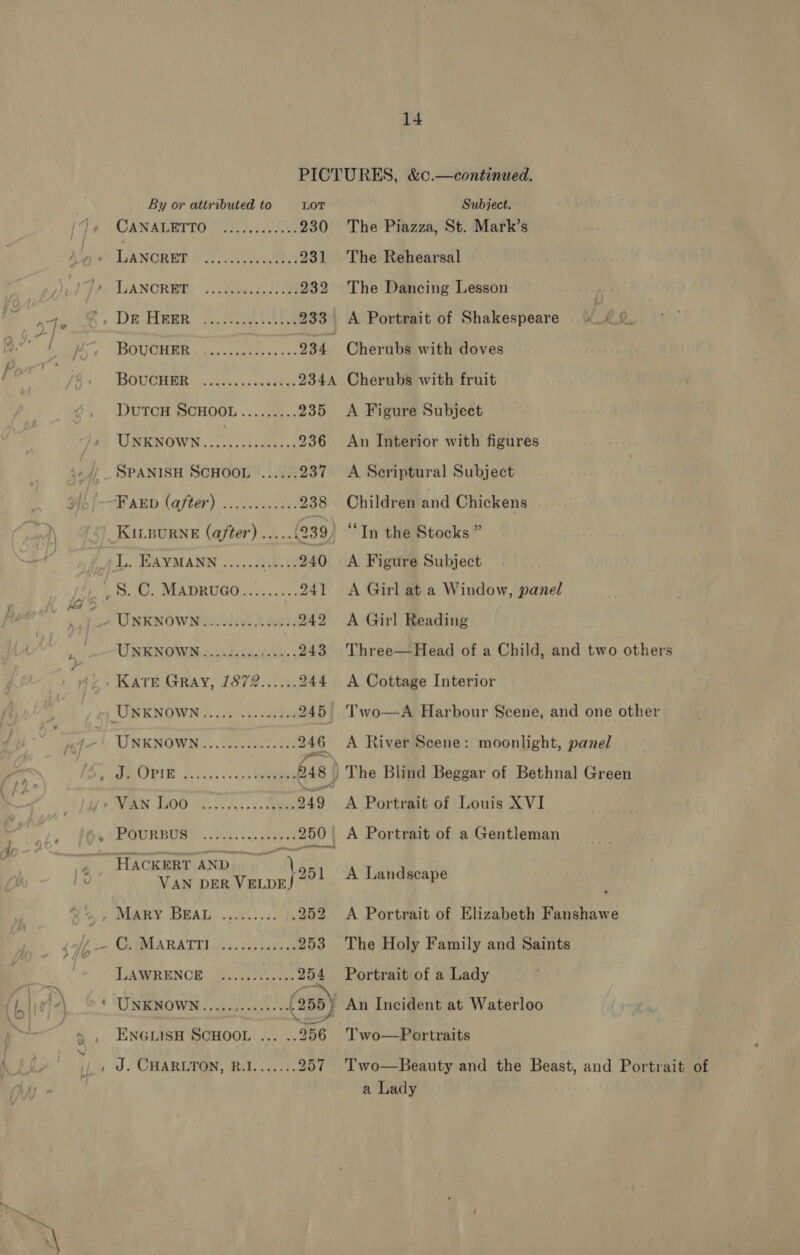 14
PICTURES, &c.—continued.
By or attributed to LOT Subject.
CANALETTO ............ 230 The Piazza, St. Mark's
LANCRET ............... 231 The Rehearsal
LANCRET ............... 232 The Dancing Lesson
DE HEER ............... 233 A Portrait of Shakespeare
BOUCHER ............... 234 Cherubs with doves
BOUCHER ............... 234A Cherubs with fruit
DUTCH SCHOOL ......... 235 A Figure Subject
UNKNOWN ............... 236 An Interior with figures
SPANISH SCHOOL ...... 237 A Scriptural Subject
FAED (after) ............ 238 Children and Chickens
KILBURNE (after) ..... 239 “In the Stocks”
L. EAYMANN ............ 240 A Figure Subject
S. C. MADRUGO ......... 241 A Girl at a Window, panel
UNKNOWN ............... 242 A Girl Reading
UNKNOWN ............... 243 Three—Head of a Child, and two others
KATE GRAY, 1872 ...... 244 A Cottage Interior
UNKNOWN ............... 245 Two—A Harbour Scene, and one other
UNKNOWN ............... 246 A River Scene: moonlight, panel
J. OPIE .................. 248 The Blind Beggar of Bethnal Green
VAN LOO ............... 249 A Portrait of Louis XVI
POURBUS ............... 250 A Portrait of a Gentleman
HACKERT AND
VAN DER VELDE } 251 A Landscape
MARY BEAL ............ 252 A Portrait of Elizabeth Fanshawe
C. MARATTI ............ 253 The Holy Family and Saints
LAWRENCE ............ 254 Portrait of a Lady
UNKNOWN ............... 255 An Incident at Waterloo
ENGLISH SCHOOL ... .. 256 Two—Portraits
J. CHARLTON, R.I. ...... 257 Two—Beauty and the Beast, and Portrait of
a Lady